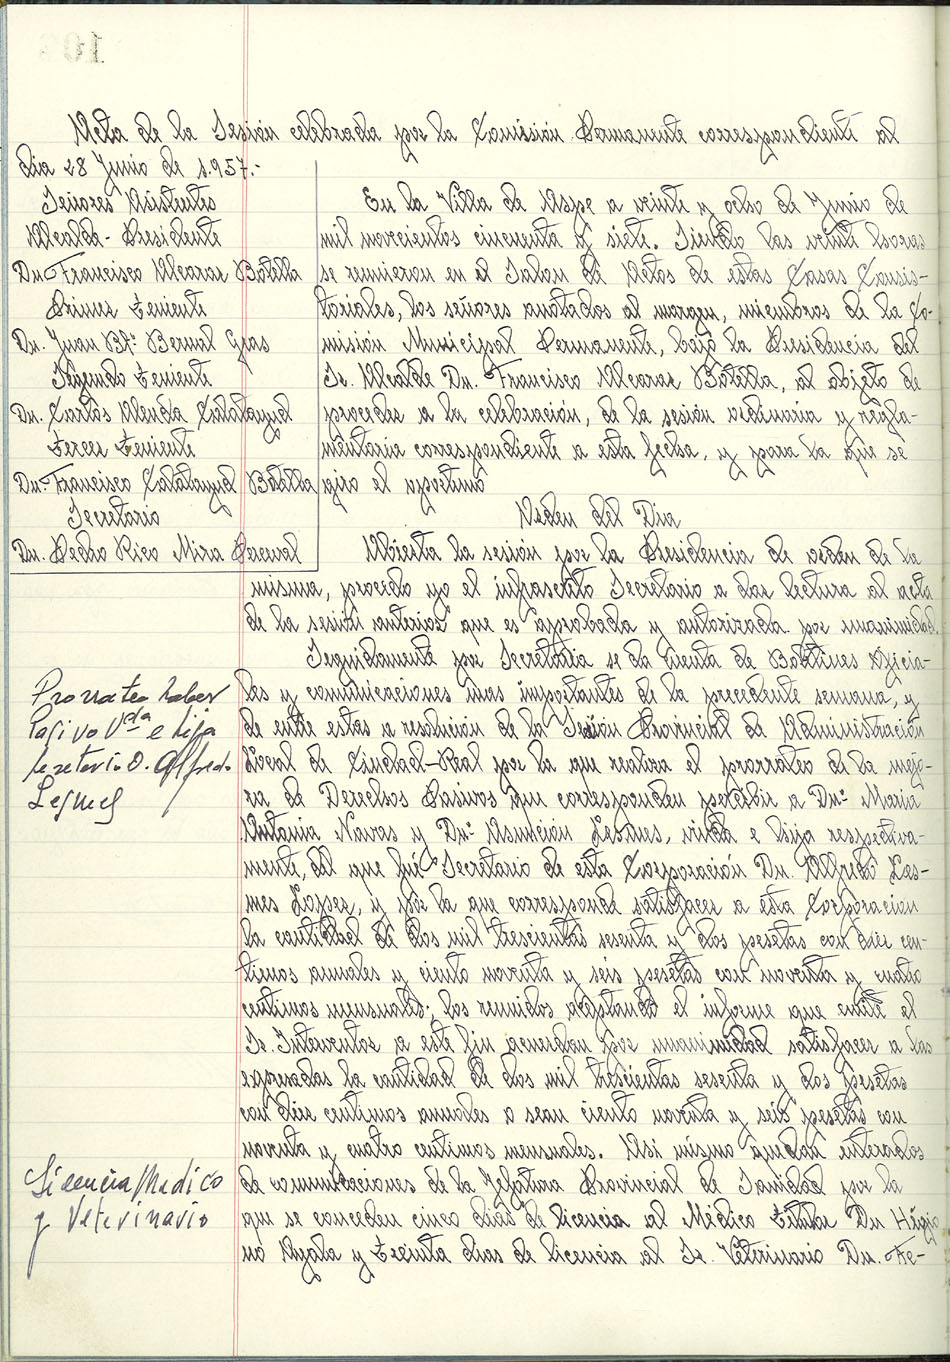 Acta de la Sesión celebrada por la Comisión Permanente correspondiente al
dia 28 Junio de 1.957.-
Señores Asistentes
Alcalde-Presidente
Dn. Francisco Alcaraz Botella
Primer Teniente
Dn. Juan Btª. Bernal Gras
Segundo Teniente
Dn. Carlos Alenda Calatayud
Tercer Teniente
Dn. Francisco Calatayud Botella
Secretario
Dn. Pedro Rico Mira Perceval
En la Villa de Aspe a veinte y ocho de Junio de
mil novecientos cincuenta y siete. Siendo las veinte horas
se reunieron en el Salon de Actos de estas Casas Consis-
toriales, los señores anotados al margen, miembros de la Co-
misión Municipal Permanente, bajo la Presidencia del
Sr. Alcalde Dn. Francisco Alcaraz Botella, al objeto de
proceder a la celebración, de la sesión ordinaria y regla-
mentaria correspondiente a esta fecha, y para la que se
giro el oportuno
Orden del Dia
Abierta la sesión por la Presidencia de orden de la
misma, procedo yo el infrascrito Secretario a dar lectura al acta
de la sesión anterior que es aprobada y autorizada por unanimidad.
Seguidamente por Secretaria se da cuenta de Boletines Oficia-
les y comunicaciones mas importantes de la precedente semana, y
de entre estas a resolución de la Sesión Provincial de Administración
Local de Ciudad-Real por la que realiza el prorrateo de la mejo-
ra de Derechos Pasivos que corresponden percibir a Dnª. Maria
Antonia Navas y Dnª. Asunción Lesmes, viuda e hija respectiva-
mente, del que fué Secretario de esta Corporación Dn. Alfredo Les-
mes Lopez, y por la que corresponde satisfacer a esta Corporacion
la cantidad de dos mil trescientas sesenta y dos pesetas con diez cen-
timos anuales y ciento noventa y seis pesetas con noventa y cuatro
centimos mensuales; los reunidos aceptando el informe que emite el
Sr. Interventor a este fin acuerdan por unanimidad satisfacer a las
expresadas la cantidad de dos mil trescientas sesenta y dos pesetas
con diez centimos anuales o sean ciento noventa y seis pesetas con
noventa y cuatro centimos mensuales. Asi mismo quedan enterados
de comunicaciones de la Jefatura Provincial de Sanidad por la
que se conceden cinco dias de licencia al Médico Titular Dn Higi-
nio Ayala y Treinta dias de licencia al Sr. Veterinario Dn. Fe-
Prorrateo haber
Pasivo Vda e hija
Secretario D. Alfredo
Lesmes
Licencia Medico
y Veterinario